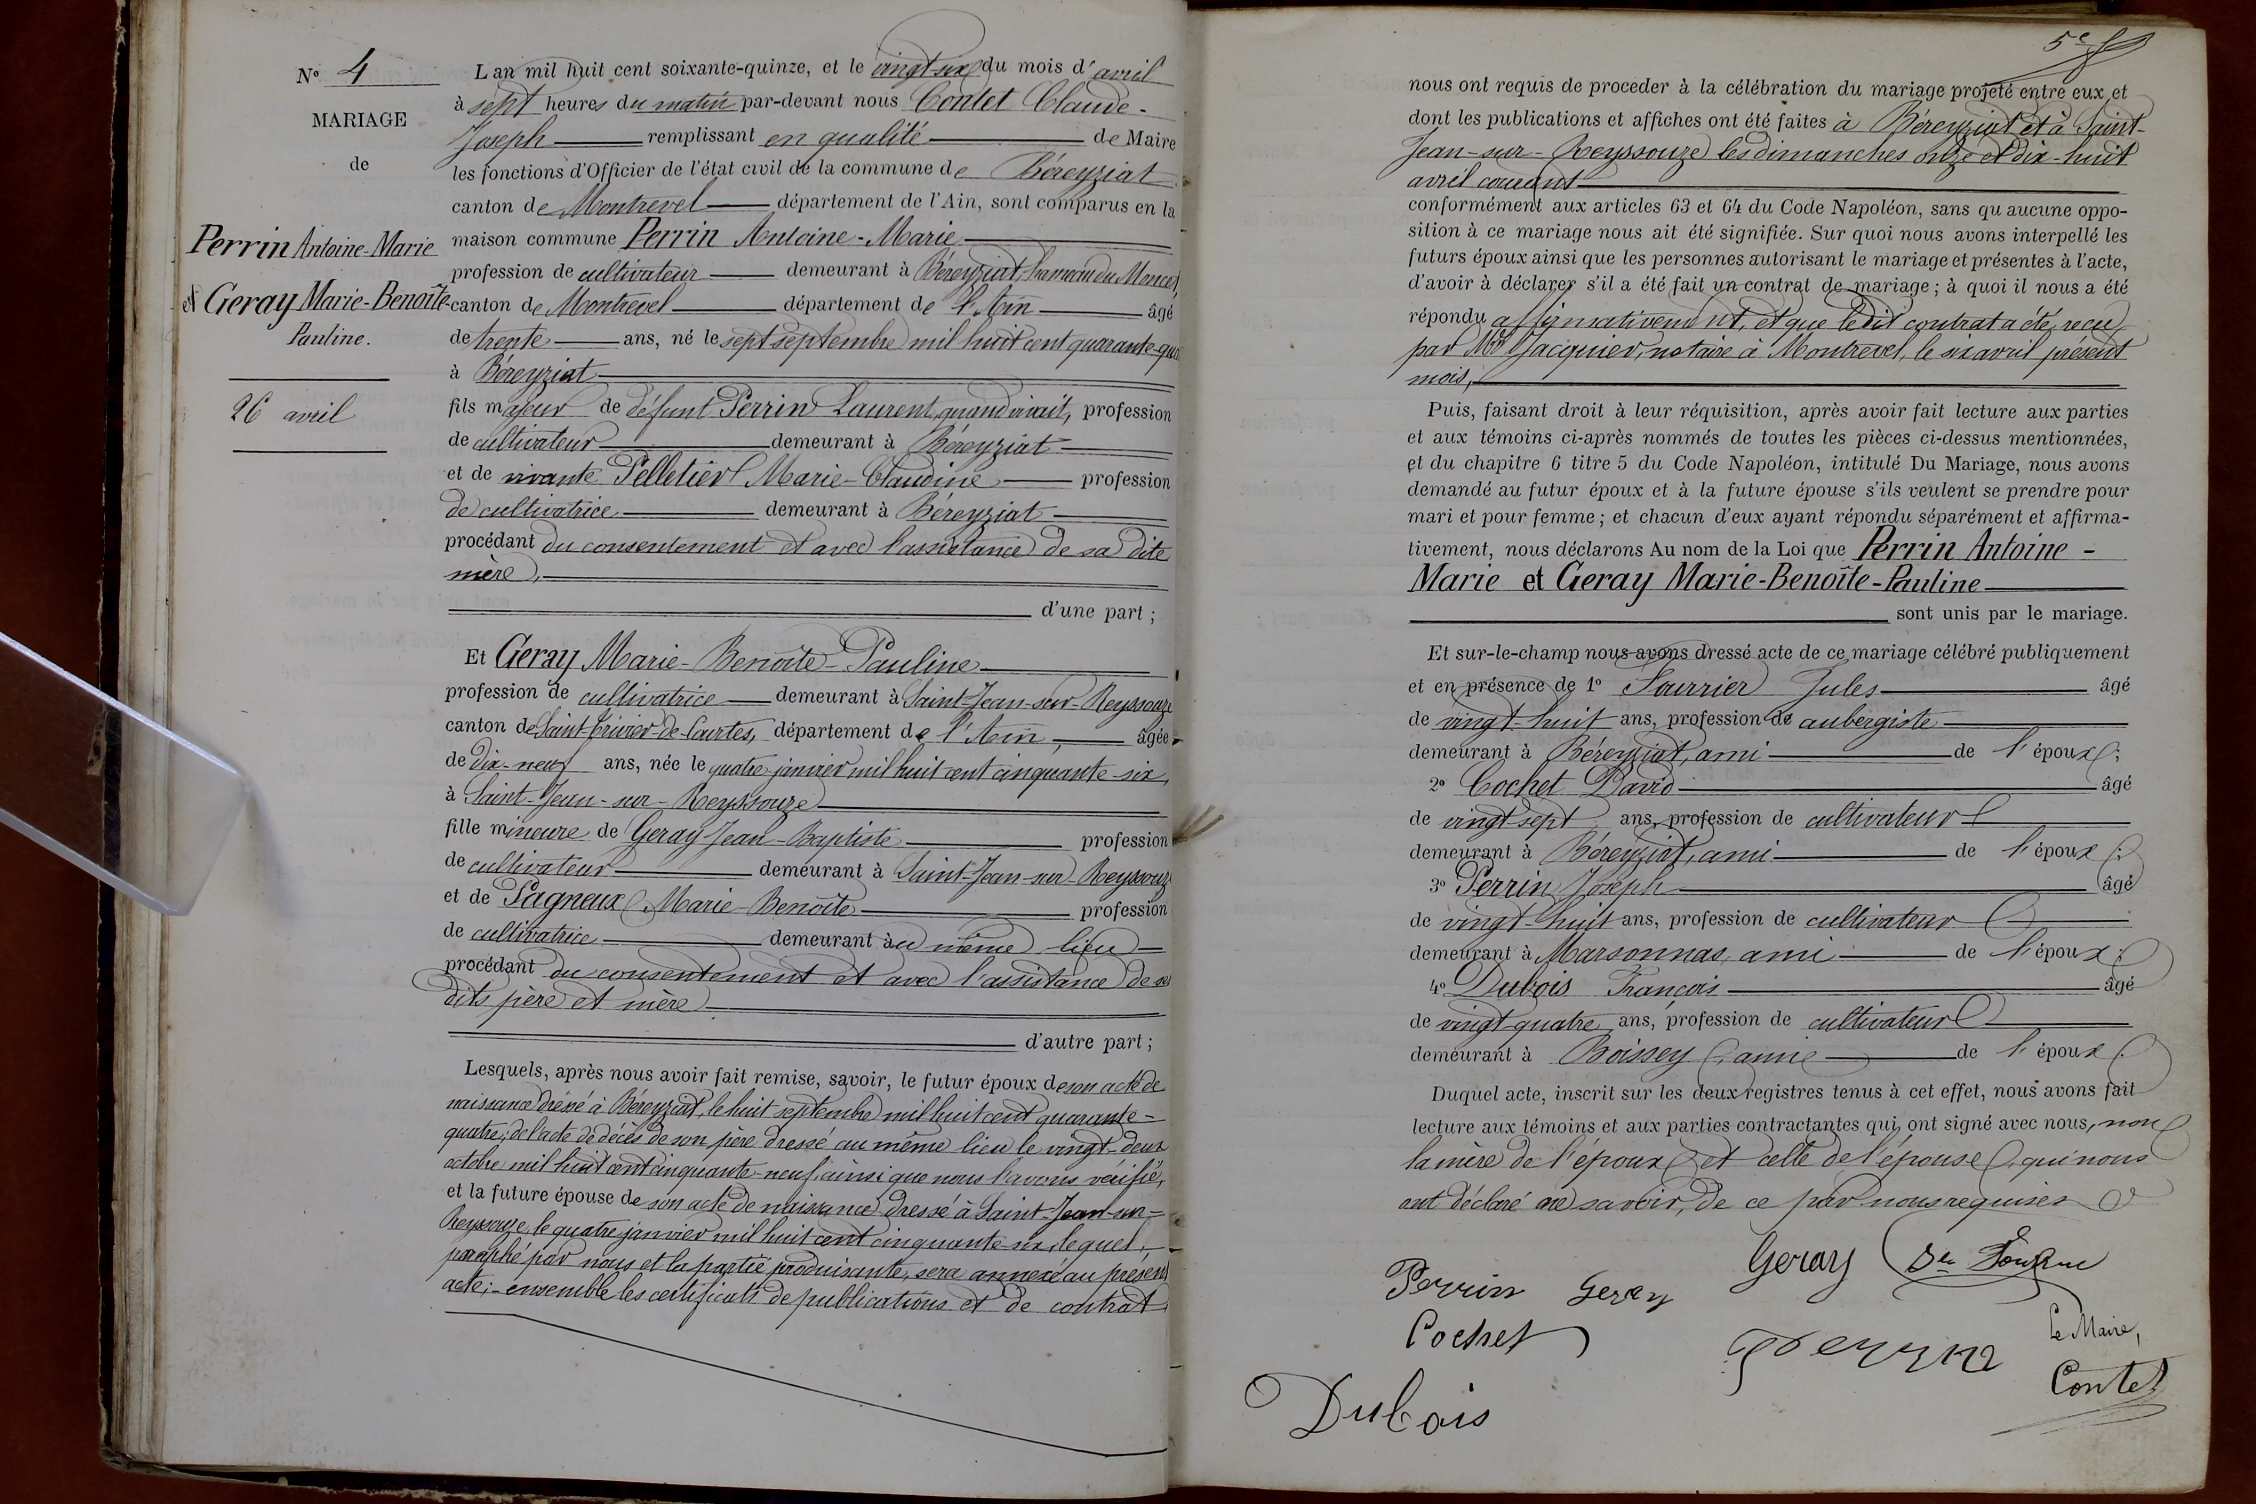 N° 4
MARIAGE
de
Perrin Antoine-Marie
et Geray Marie-Benoîte-
Pauline.
26 avril
L'an mil huit cent soixante-quinze, et le vingt six du mois d'avril
à sept heures du matin par-devant nous Contet Claude-
Joseph remplissant en qualité de Maire
les fonctions d'Officier de l'état civil de la commune de Béreyziat
canton de Montrevel département de l'Ain, sont comparus en la
maison commune Perrin Antoine-Marie
profession de cultivateur demeurant à Béreyziat, hameau du
canton de Montrevel département de l'Ain âgé
de trente ans, né le sept septembre mil huit cent quarante-qua
à Béreyziat
fils majeur de défunt Perrin Laurent, quand vivait, profession
de cultivateur demeurant à Béreyziat
et de vivante Pelletier Marie-Claudine profession
de cultivatrice demeurant à Béreyziat
procédant du consentement et avec l'assistance de sa dite
mère,
d'une part ;
Et Geray Marie-Benoîte-Pauline
profession de cultivatrice demeurant à Saint-Jean-sur-Reyssouze
canton de Saint-Trivier-de-Courtes, département de l'Ain, âgée
de dix-neuf ans, née le quatre janvier mil huit cent cinquante-six,
à Saint-Jean-sur-Reyssouze
fille mineure de Geray Jean-Baptiste profession
de cultivateur demeurant à Saint-Jean-sur-Reyssouz
et de Pagneux Marie-Benoîte profession
de cultivatrice demeurant au même lieu
procédant du consentement et avec l'assistance de ses
dits père et mère
d'autre part ;
Lesquels, après nous avoir fait remise, savoir, le futur époux de son acte de
naissance dressé à Béreyziat, le huit septembre mil huit cent quarante-
quatre; de l'acte de décès de son père dressé au même lieu le vingt-deux
octobre mil huit cent cinquante-neuf, ainsi que nous l'avons vérifié,
et la future épouse de son acte de naissance dressé à Saint-Jean-sur-
Reyssouze, le quatre janvier mil huit cent cinquante-six, lequel,
paraphé par nous et la partie produisante, sera annexé au présent
acte; - ensemble les certificats de publications et de contrat
5e
nous ont requis de proceder à la célébration du mariage projeté entre eux et
dont les publications et affiches ont été faites à Béreyziat et à Saint-
Jean-sur-Reyssouze les dimanches onze et dix-huit
avril courant
conformément aux articles 63 et 64 du Code Napoléon, sans qu aucune oppo-
sition à ce mariage nous ait été signifiée. Sur quoi nous avons interpellé les
futurs époux ainsi que les personnes autorisant le mariage et présentes à l'acte,
d'avoir à déclarer s'il a été fait un contrat de mariage ; à quoi il nous a été
répondu affirmativement, et que ledit contrat a été reçu
par Me Jacquier, notaire à Montrevel, le six avril présent
mois,
Puis, faisant droit à leur réquisition, après avoir fait lecture aux parties
et aux témoins ci-après nommés de toutes les pièces ci-dessus mentionnées,
et du chapitre 6 titre 5 du Code Napoléon, intitulé Du Mariage, nous avons
demandé au futur époux et à la future épouse s'ils veulent se prendre pour
mari et pour femme ; et chacun d'eux ayant répondu séparément et affirma-
tivement, nous déclarons Au nom de la Loi que Perrin Antoine -
Marie et Geray Marie-Benoîte-Pauline
sont unis par le mariage.
Et sur-le-champ nous avons dressé acte de ce mariage célébré publiquement
et en présence de 1° Jules âgé
de vingt-huit ans, profession de aubergiste
demeurant à Béreyziat, ami de l'époux ;
2° Cochet David âgé
de vingt sept ans, profession de cultivateur
demeurant à Béreyziat, ami de l'époux ;
3° Perrin Joseph âgé
de vingt-huit ans, profession de cultivateur
demeurant à Marsonnas, ami de l'époux ;
4° Dubois François âgé
de vingt-quatre ans, profession de cultivateur
demeurant à Boissey, ami de l'époux.
Duquel acte, inscrit sur les deux registres tenus à cet effet, nous avons fait
lecture aux témoins et aux parties contractantes qui ont signé avec nous, non
la mère de l'époux et celle de l'épouse, qui nous
ont déclaré ne savoir, de ce par nous requises
Perrin Geray Geray
Cochet Perrin Le Maire,
Dubois Contet